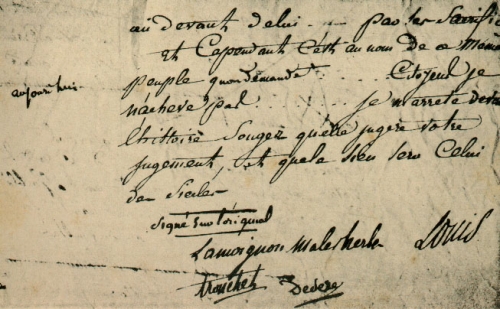 au devant de lui . . . par les sacrific
et Cependant C'est au nom de ce même
aujourd'hui
peuple qu'on demande . . . Citoyens je
n'acheve pas . . . je m'arrete devant
l'histoire Songez qu'elle jugera votre
jugement, et que le sien sera Celui
des Siecles
Signé sur l'original
Lamoignon Malesherbes
Louis
tronchet Deseze